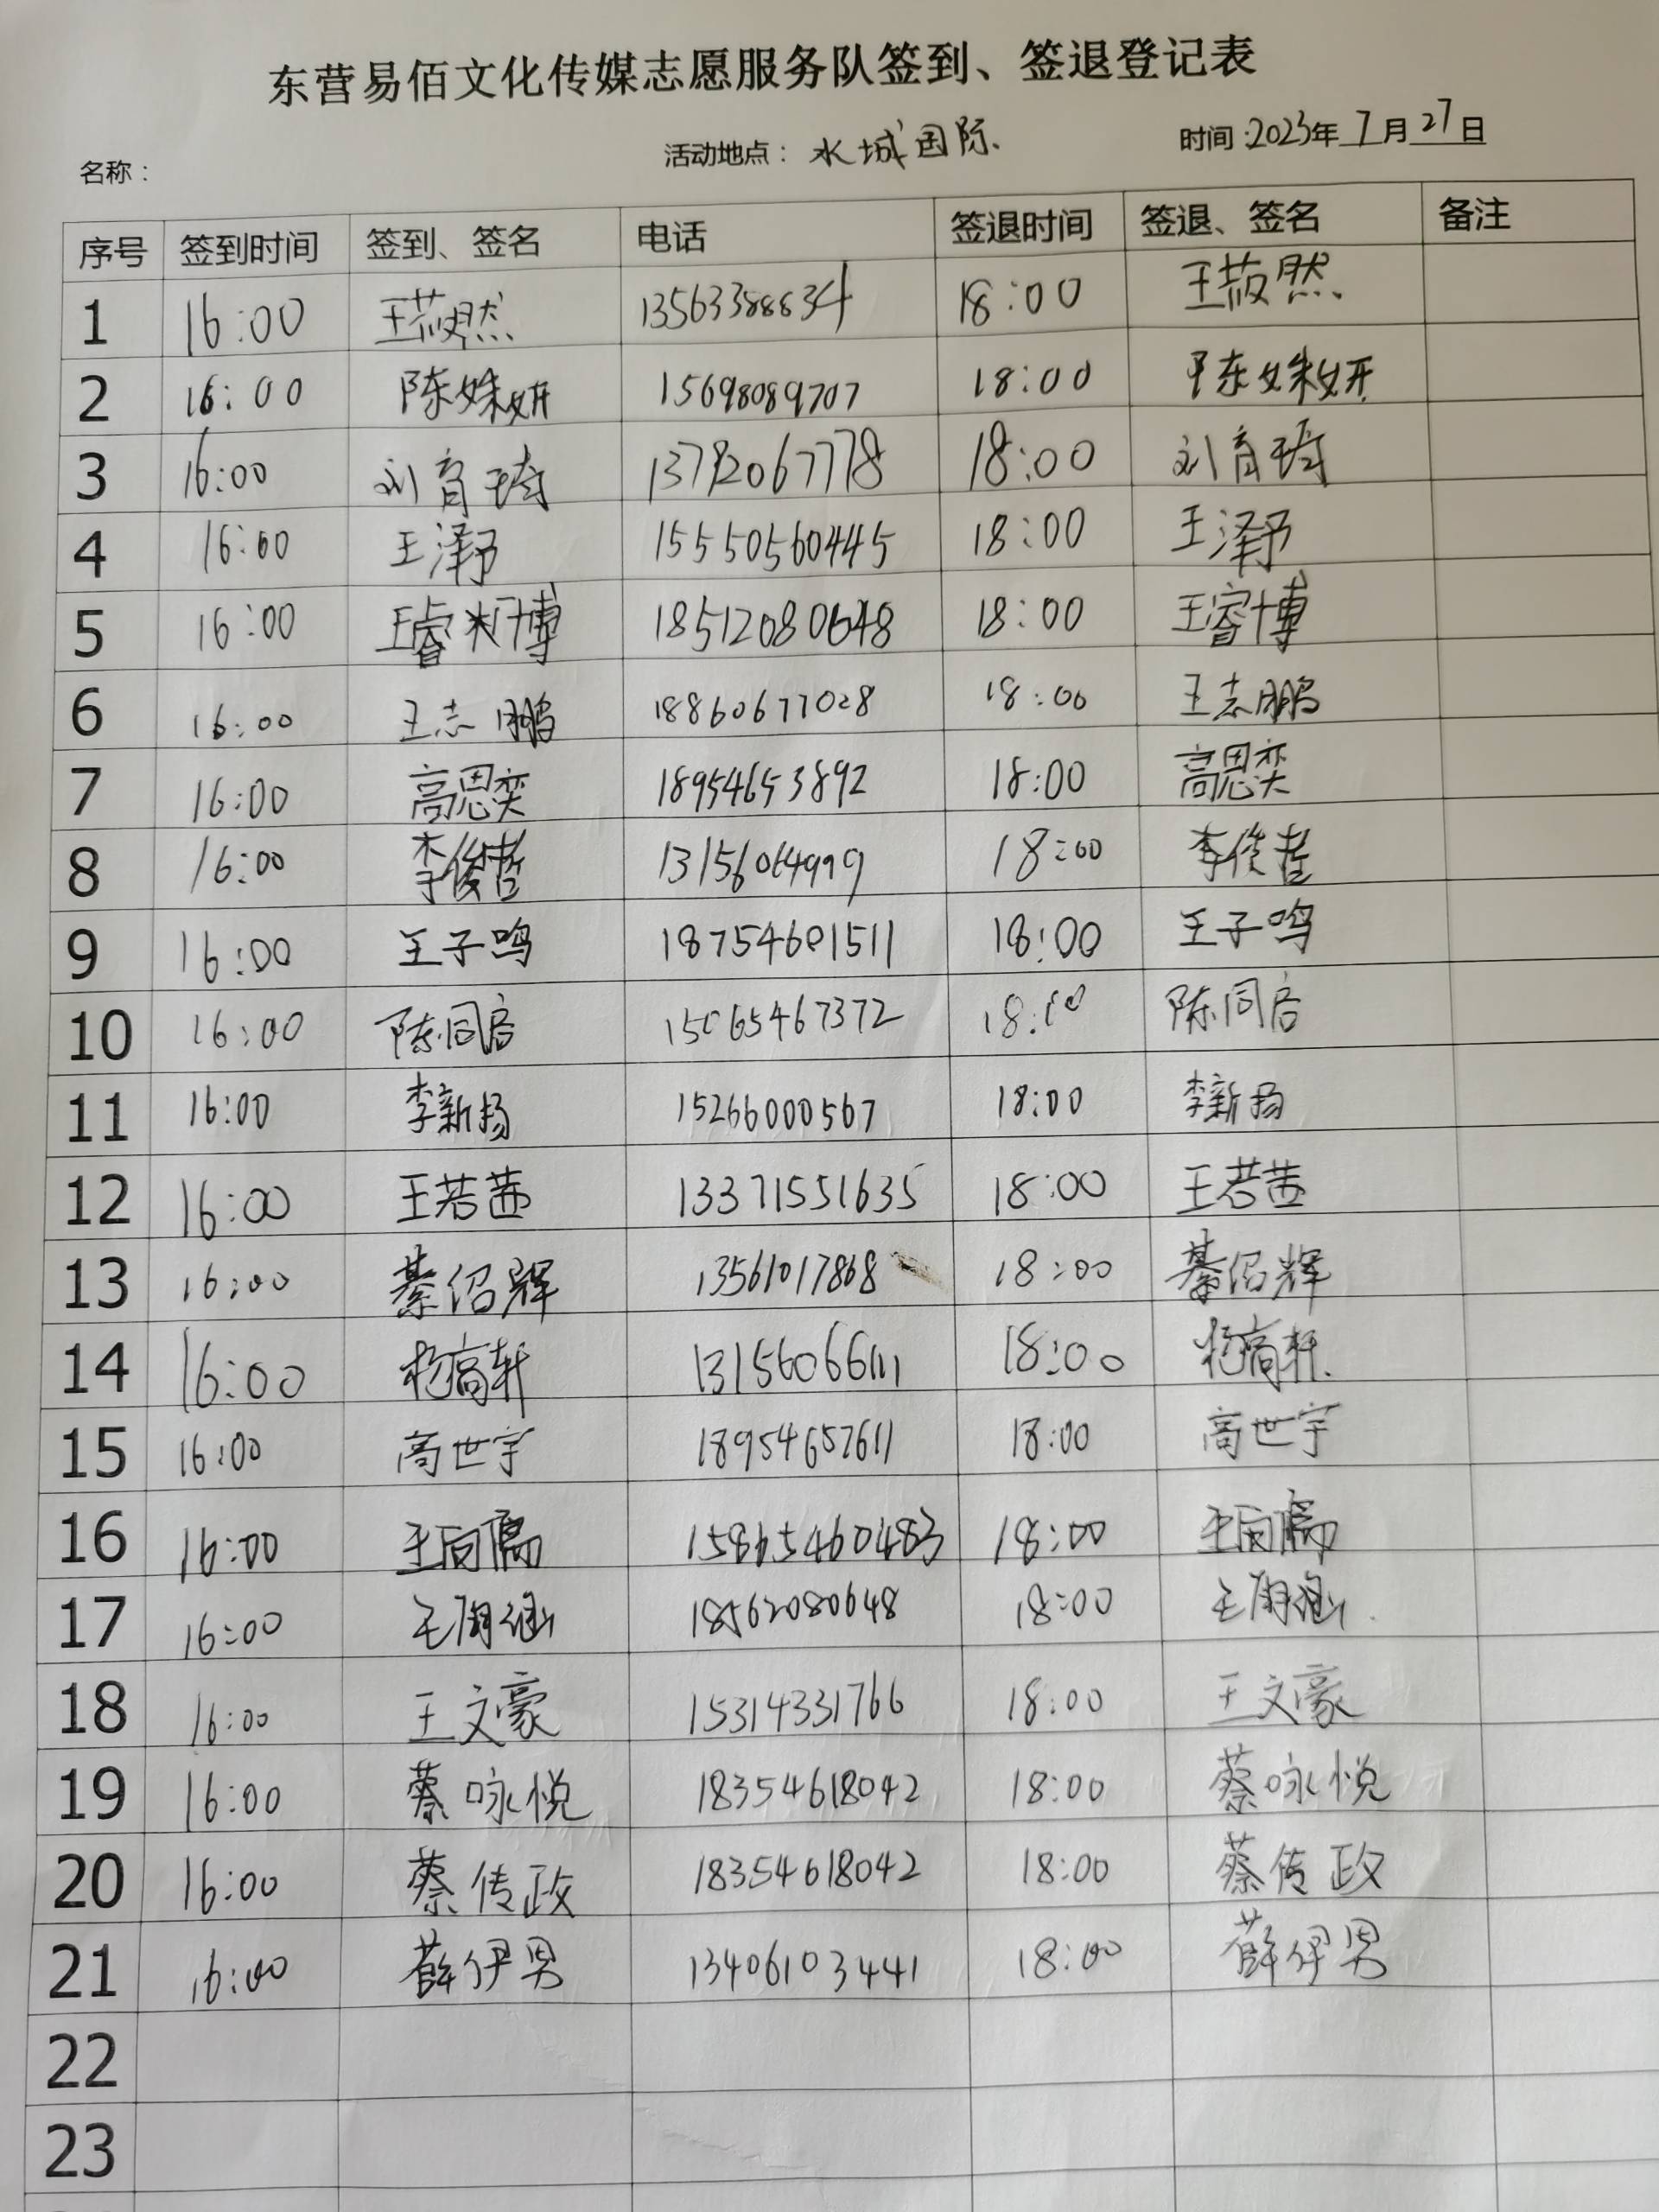 东营易佰文化传媒志愿服务队签到、签退登记表
名称： 活动地点：水城国际. 时间:2023年7月27日
序号 签到时间 签到、签名 电话 签退时间 签退、签名 备注
1 16:00 王菽然 13563388634 18:00 王菽然
2 16:00 陈姝妍 15698089707 18:00 陈姝妍
3 16:00 刘育琦 13792067778 18:00 刘育琦
4 16:00 王泽予 15550560445 18:00 王泽予
5 16:00 王睿博 18512080648 18:00 王睿博
6 16:00 王志鹏 18860677028 18:00 王志鹏
7 16:00 高恩奕 18954653892 18:00 高恩奕
8 16:00 李俊哲 13156064999 18:00 李俊哲
9 16:00 王子鸣 18754601511 18:00 王子鸣
10 16:00 陈同启 15065467372 18:00 陈同启
11 16:00 李新扬 15266000567 18:00 李新扬
12 16:00 王若茜 13371551635 18:00 王若茜
13 16:00 綦绍辉 13561017868 18:00 綦绍辉
14 16:00 杨高轩 13156066111 18:00 杨高轩
15 16:00 高世宇 18954657611 18:00 高世宇
16 16:00 15865460483 18:00
17 16:00 18562080648 18:00
18 16:00 王文豪 15314331766 18:00 王文豪
19 16:00 蔡咏悦 18354618042 18:00 蔡咏悦
20 16:00 蔡传政 18354618042 18:00 蔡传政
21 16:00 薛伊男 13406103441 18:00 薛伊男
22
23